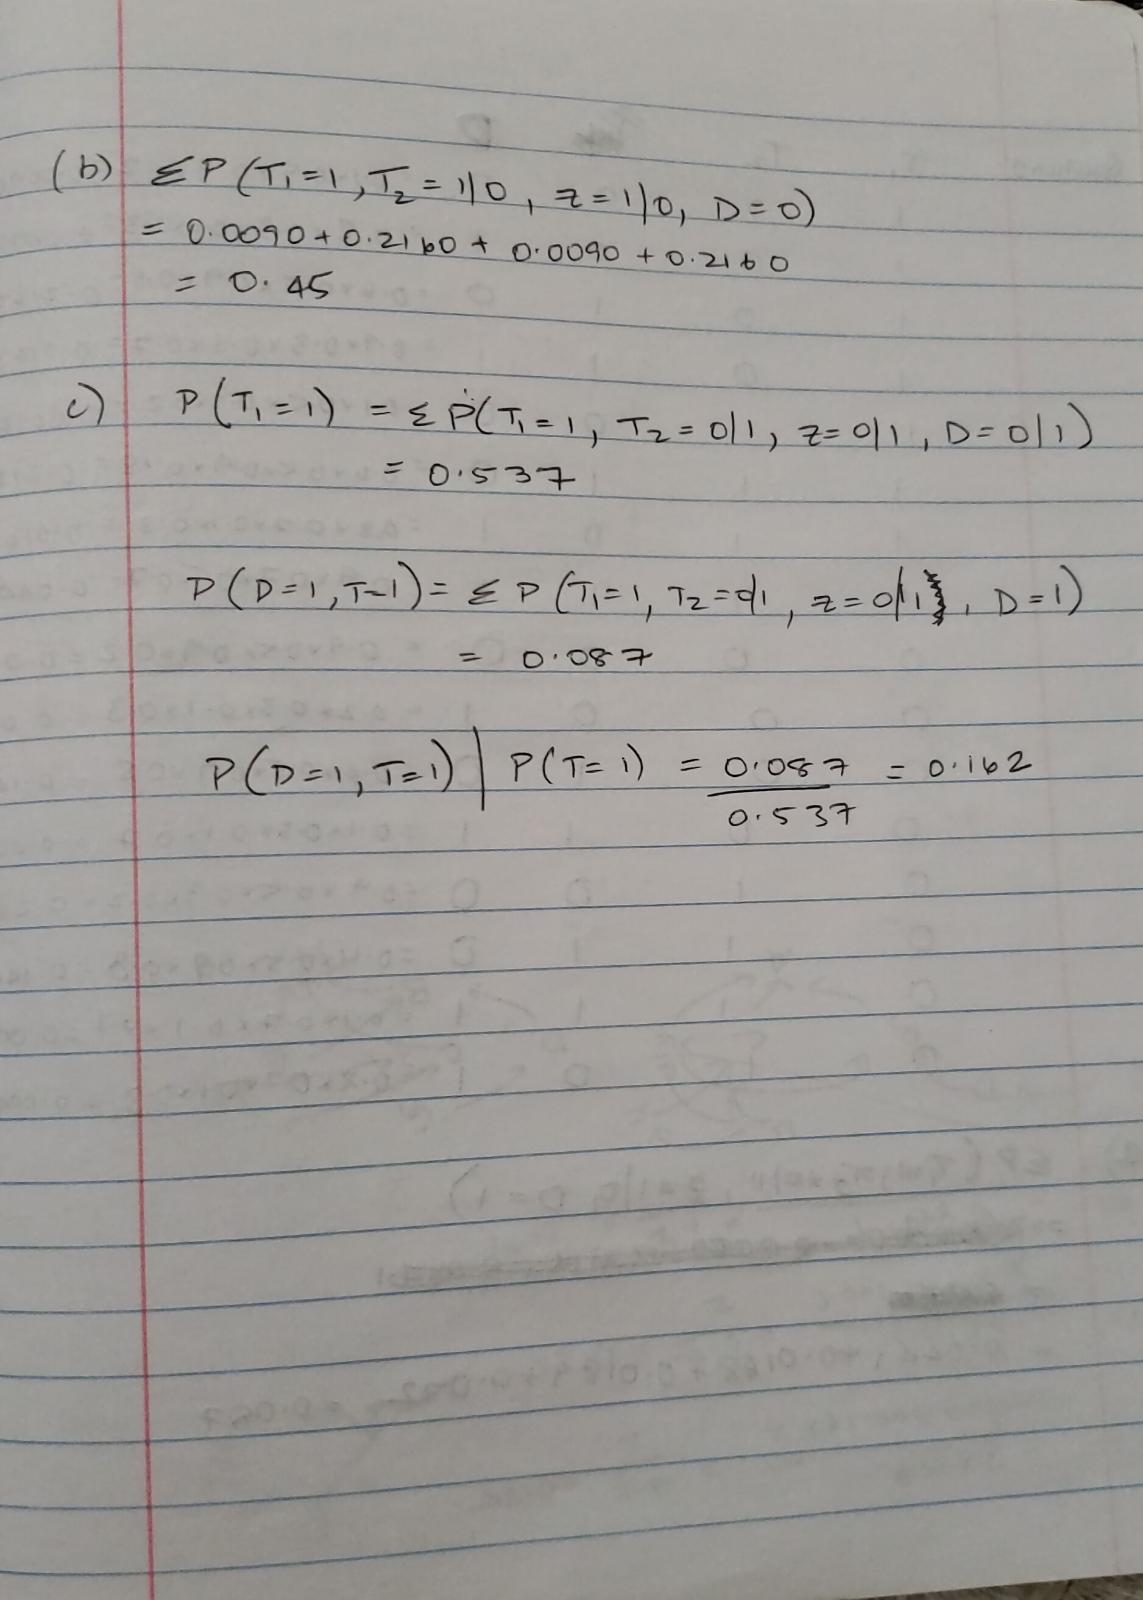 (b) ΣP(T₁=1, T₂=1/0, z=1/0, D=0)
= 0.0090+0.2160+ 0.0090+0.2160
= 0.45
c) P(T₁=1) = ΣP(T₁=1, T₂=0/1, z=0/1, D=0/1)
= 0.537
P(D=1,T=1)= ΣP(T₁=1, T₂=0/1, z=0/1, D=1)
= 0.087
P(D=1, T=1) | P(T=1) = 0.087 = 0.162
0.537